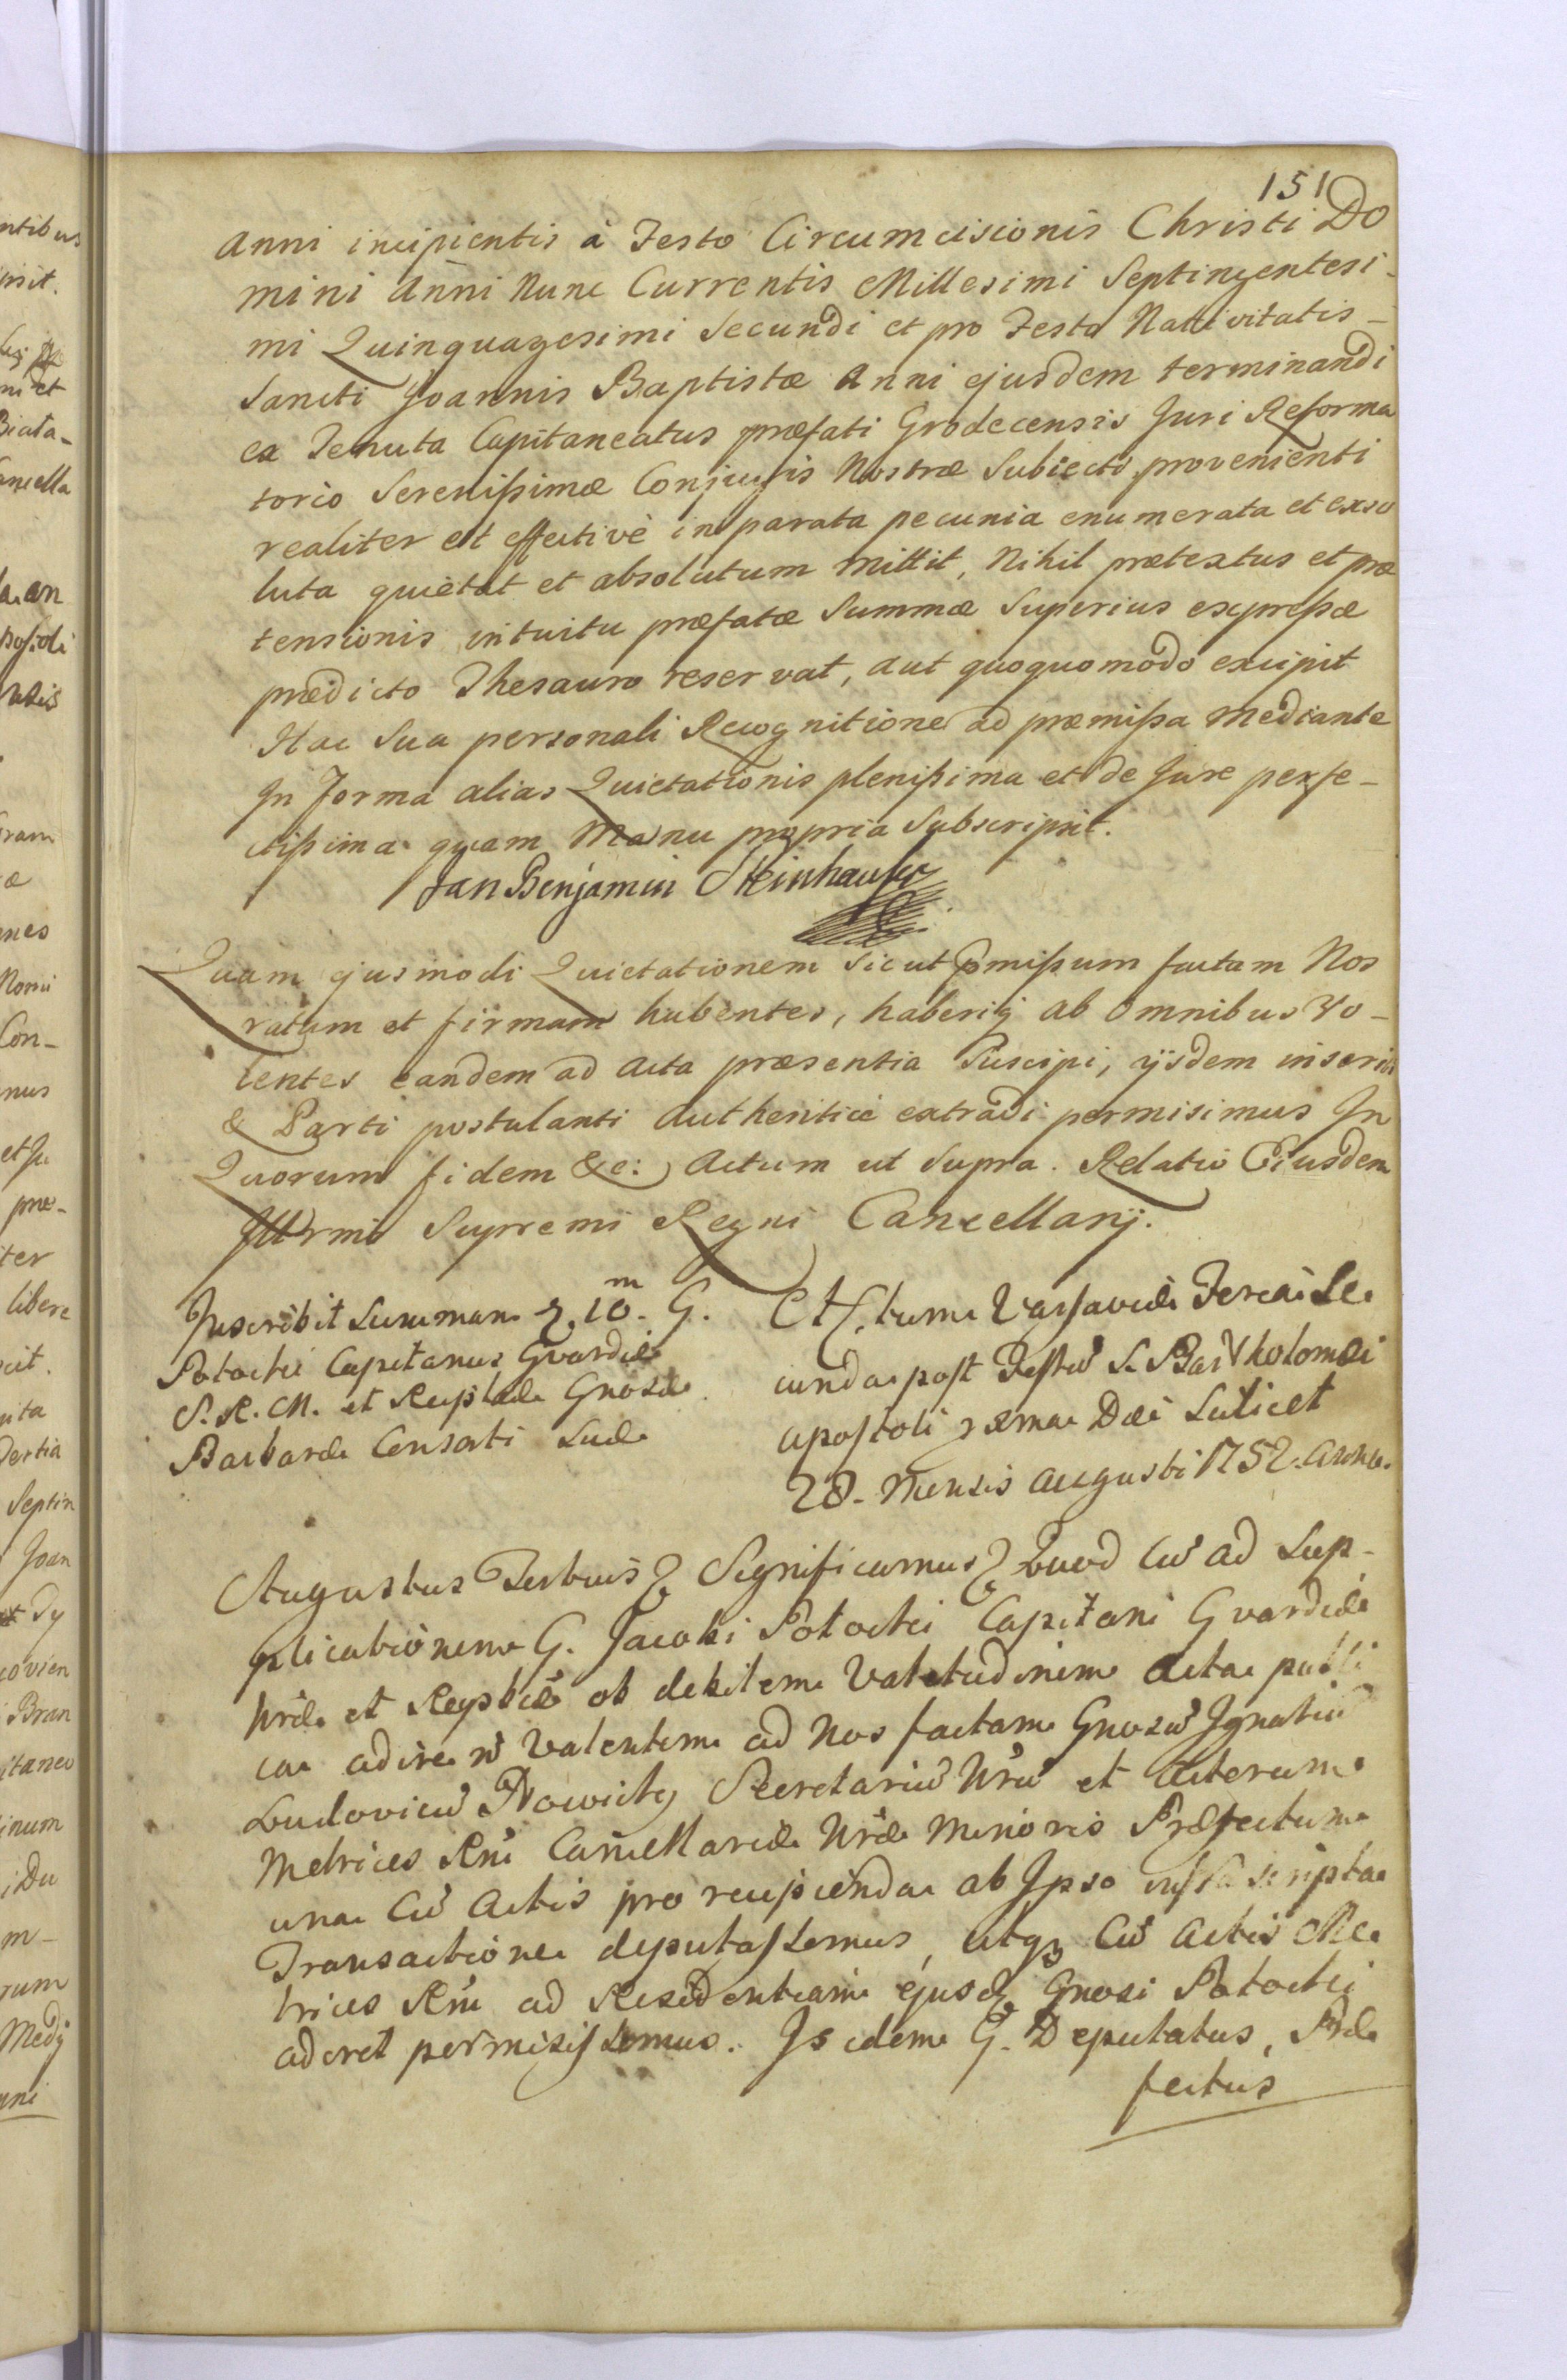 151
Anni incipientis à Festo Circumcisionis Christi Do
mini Anni Nunc Currentis Millesimi Septingentesi-
mi Quinquagesimi Secundi et pro Festo Nativitatis
Sancti Joannis Baptistæ Anni ejusdem terminandi
ex Tenuta Capitaneatus præfati Grodecensis Juri Reforma
torio Serenissimæ Conjugis Nostræ Subiecto provenienti
realiter et effective in parata pecunia enumerata et exso
luta quietat et absolutum mittit, Nihil prætextus et præ
tensionis intuitu præfatæ Summæ Superius expressæ
prædicto Thesauro reservat, aut quoquomodo excipit
Hac Sua personali Recognitione ad præmissa mediante
In Forma alias Quietationis plenissima et de Jure perfe-
ctissima quam Manu propria Subscripsit.
Jan Benjamin Steinhauser
Quam ejusmodi Quietationem Sicut pmissum factam Nos
ratam et firmam habentes, haberiq ab omnibus Vo-
lentes eandem ad Acta præsentia Suscipi, ijsdem inseri
& Parti postulanti Authentice extradi permisimus In
Quorum fidem &c: Actum ut Supra. Relatio Eiusdem
Illrmi Supremi Regni Cancellarij.
Inscribit Summam 10. m G.
Potocki Capitanus Gvardiæ
S. R. M. et Reiplæ Gnosæ
Barbaræ Consorti Suæ
Actum Varsaviæ Feria Se
cunda post Festū S. Bartholomæi
Apostoli xma Die Scilicet
28. Mensis Augusti 1752. Anno.
Augustus Tertius Significamus Quod Cū ad Sup-
plicationem G. Jacobi Potocki Capitani Gvardiæ
Nræ et Reipbcæ ob debilem Valetudinem Acta publi
ca adire n̄ Valentem ad Nos factam Gnosū Ignatiū
Ludovicū Nowicki Secretariū Nrū et Acterum
Metrices Rni Cancellariæ Nræ Minoris Præfectum
una Cū Actis pro recipienda ab Ipso infra scripta
Transactione deputassemus, utq Cū Actis Me
trices Rni ad Residentiam ejusd Gnosi Potocki
adiret permisissemus. Is idem G. Deputatus, Præ
fectus